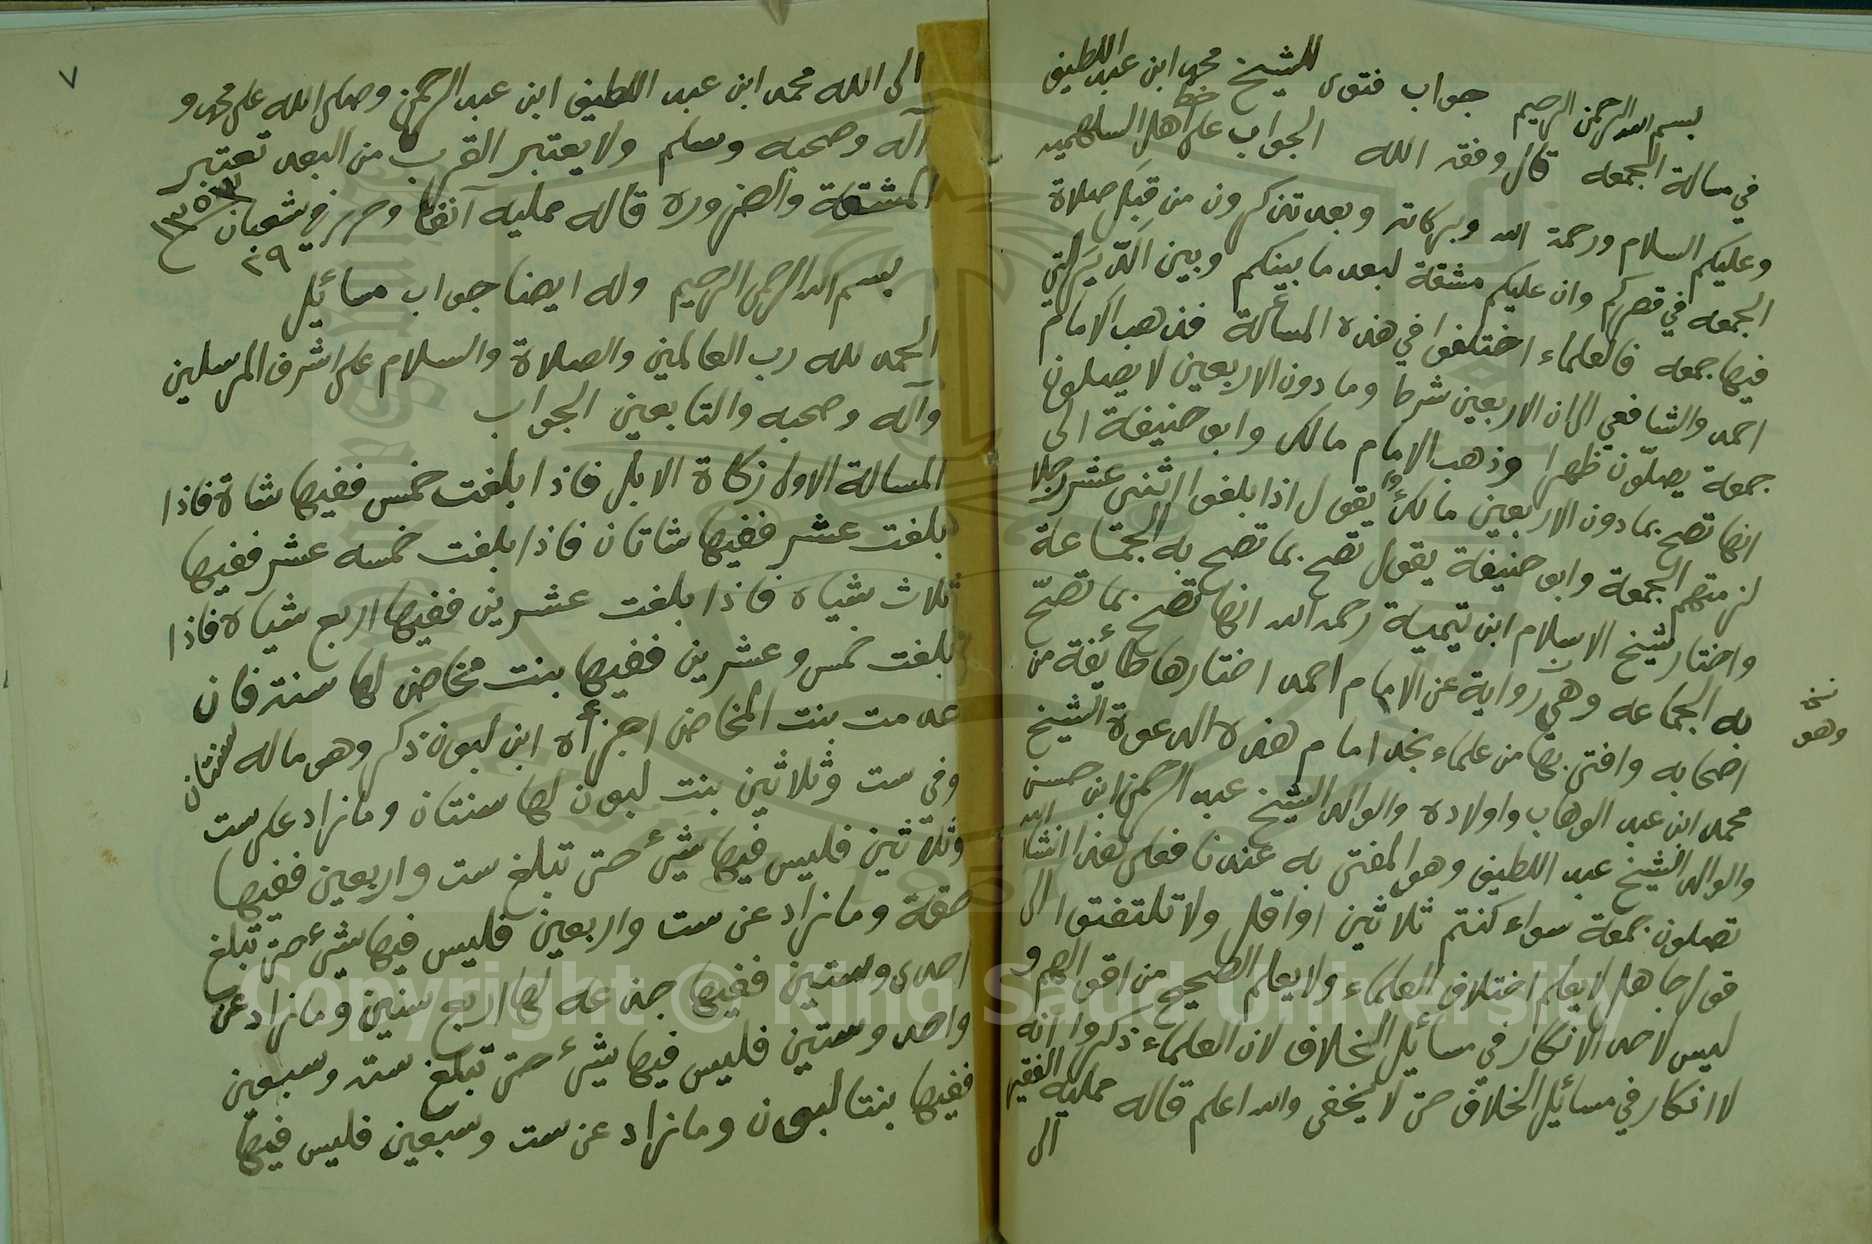 بسم الله الرحمن الرحيم جواب فتوى للشيخ محمد ابن عبد اللطيف
في مسالة الجمعه قال وفقه الله الجواب على خط اهل السلهميه
وعليكم السلام ورحمة الله وبركاته وبعد تذكرون من قبل صلاة
الجمعه في قصركم وان عليكم مشقة لبعد ما بينكم وبين الديرة التي
فيها جمعه فالعلماء اختلفوا في هذه المسألة فذهب الامام
احمد والشافعي الى ان الاربعين شرط وما دون الاربعين لا يصلون
جمعة يصلّون ظهرا وذهب الامام مالك وابو حنيفة الى
انها تصح بما دون الاربعين مالك يقول اذا بلغوا اثنى عشر رجلا
لزمتهم الجمعة وابو حنيفة يقول تصح بما تصح به الجماعة
واختار شيخ الاسلام ابن تيمية رحمه الله انها تصح بما تصحّ
به الجماعه وهي رواية عن الامام احمد اختارها طائفة من
اصحابه وافتى بها من علماء نجد امام هذه الدعوة الشيخ
محمد ابن عبد الوهاب واولاده والوالد الشيخ عبد الرحمن ابن حسن
والوالد الشيخ عبد اللطيف وهو المفتى به عندنا فعلى هذا انشا الله
تصلون جمعة سواء كنتم ثلاثين او اقل ولا تلتفتوا الى
قول جاهل لا يعلم اختلاف العلماء ولا يعلم الصحيح من اقوالهم و
ليس لاحد الانكار في مسائل الخلاف لان العلماء ذكروا انه
لا انكار في مسائل الخلاف حتى لا يخفى والله اعلم قاله ممليه الفقير
الى
نخ
وهو
٧
الى الله محمد ابن عبد اللطيف ابن عبد الرحمن وصلى الله على محمد و
آله وصحبه وسلم ولا يعتبر القرب من البعد تعتبر
المشقة والضرورة قاله ممليه آنفا وحرر في شعبان ١٣٥٣
٢٩
بسم الله الرحمن الرحيم وله ايضا جواب مسائيل
الحمد لله رب العالمين والصلاة والسلام على اشرف المرسلين
وآله وصحبه والتابعين الجواب
المسالة الاولى زكاة الابل فاذا بلغت خمس ففيها شاة فاذا
بلغت عشر ففيها شاتان فاذا بلغت خمسه عشر ففيها
ثلاث شياه فاذا بلغت عشرين ففيها اربع شياه فاذا
بلغت خمس وعشرين ففيها بنت مخاض لها سنه فان
عدمت بنت المخاض اجزأه ابن لبون ذكر وهو ماله سنتان
وفي ست وثلاثين بنت لبون لها سنتان وما زاد على ست
وثلاثين فليس فيها شيء حتى تبلغ ست واربعين ففيها
حقة وما زاد عن ست واربعين فليس فيها شيء حتى تبلغ
احدى وستين ففيها جذعه لها اربع سنين وما زاد عن
واحد وستين فليس فيها شيء حتى تبلغ سته وسبعين
ففيها بنتا لبون وما زاد عن ست وسبعين فليس فيها
Copyright © King Saud University